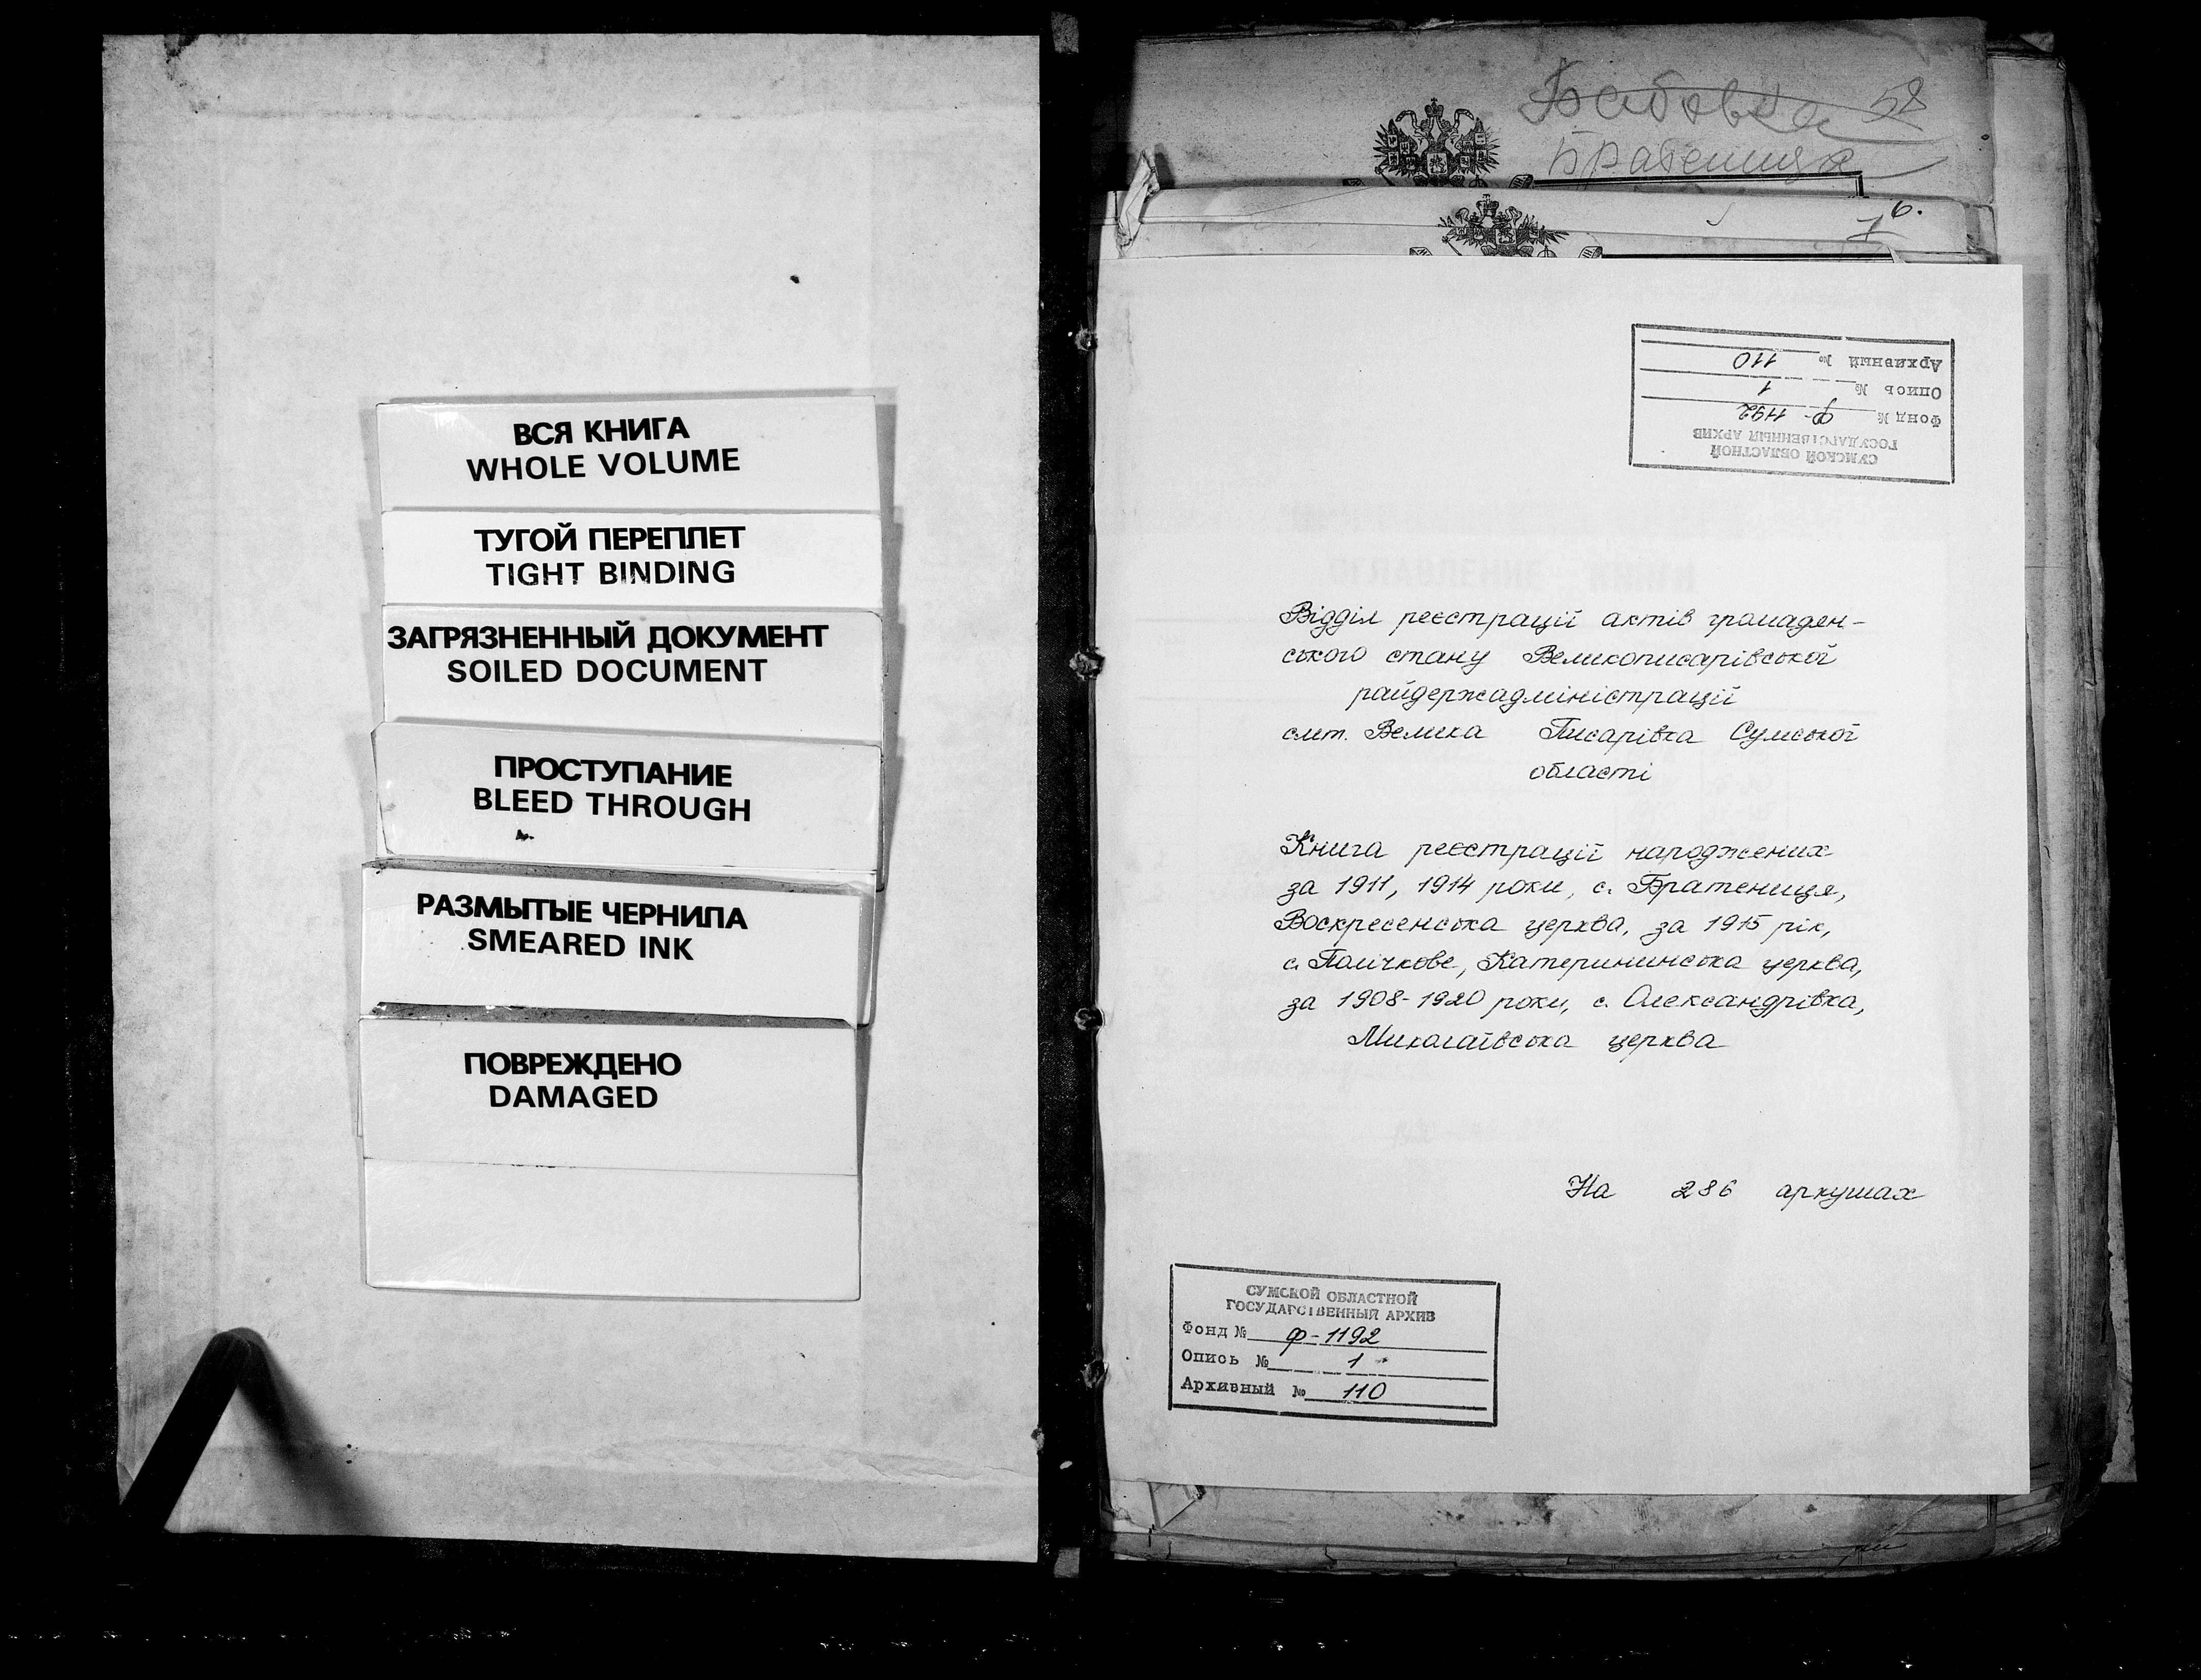 ВСЯ КНИГА
WHOLE VOLUME
ТУГОЙ ПЕРЕПЛЕТ
TIGHT BINDING
ЗАГРЯЗНЕННЫЙ ДОКУМЕНТ
SOILED DOCUMENT
ПРОСТУПАНИЕ
BLEED THROUGH
РАЗМЫТЫЕ ЧЕРНИЛА
SMEARED INK
ПОВРЕЖДЕНО
DAMAGED
58
Братениця
6.
СУМСКОЙ ОБЛАСТНОЙ
ГОСУДАРСТВЕННЫЙ АРХИВ
Фонд № Ф-1192
Опись № 1
Архивный № 110
Відділ реєстрації актів громаден-
ського стану Великописарівської
райдержадміністрації
смт. Велика Писарівка Сумської
області
Книга реєстрації народжених
за 1911, 1914 роки, с. Братениця,
Воскресенська церква, за 1915 рік,
с. Полічкове, Катерининська церква,
за 1908-1920 роки, с. Олександрівка,
Миколаївська церква
На 286 аркушах
СУМСКОЙ ОБЛАСТНОЙ
ГОСУДАРСТВЕННЫЙ АРХИВ
Фонд № Ф-1192
Опись № 1
Архивный № 110